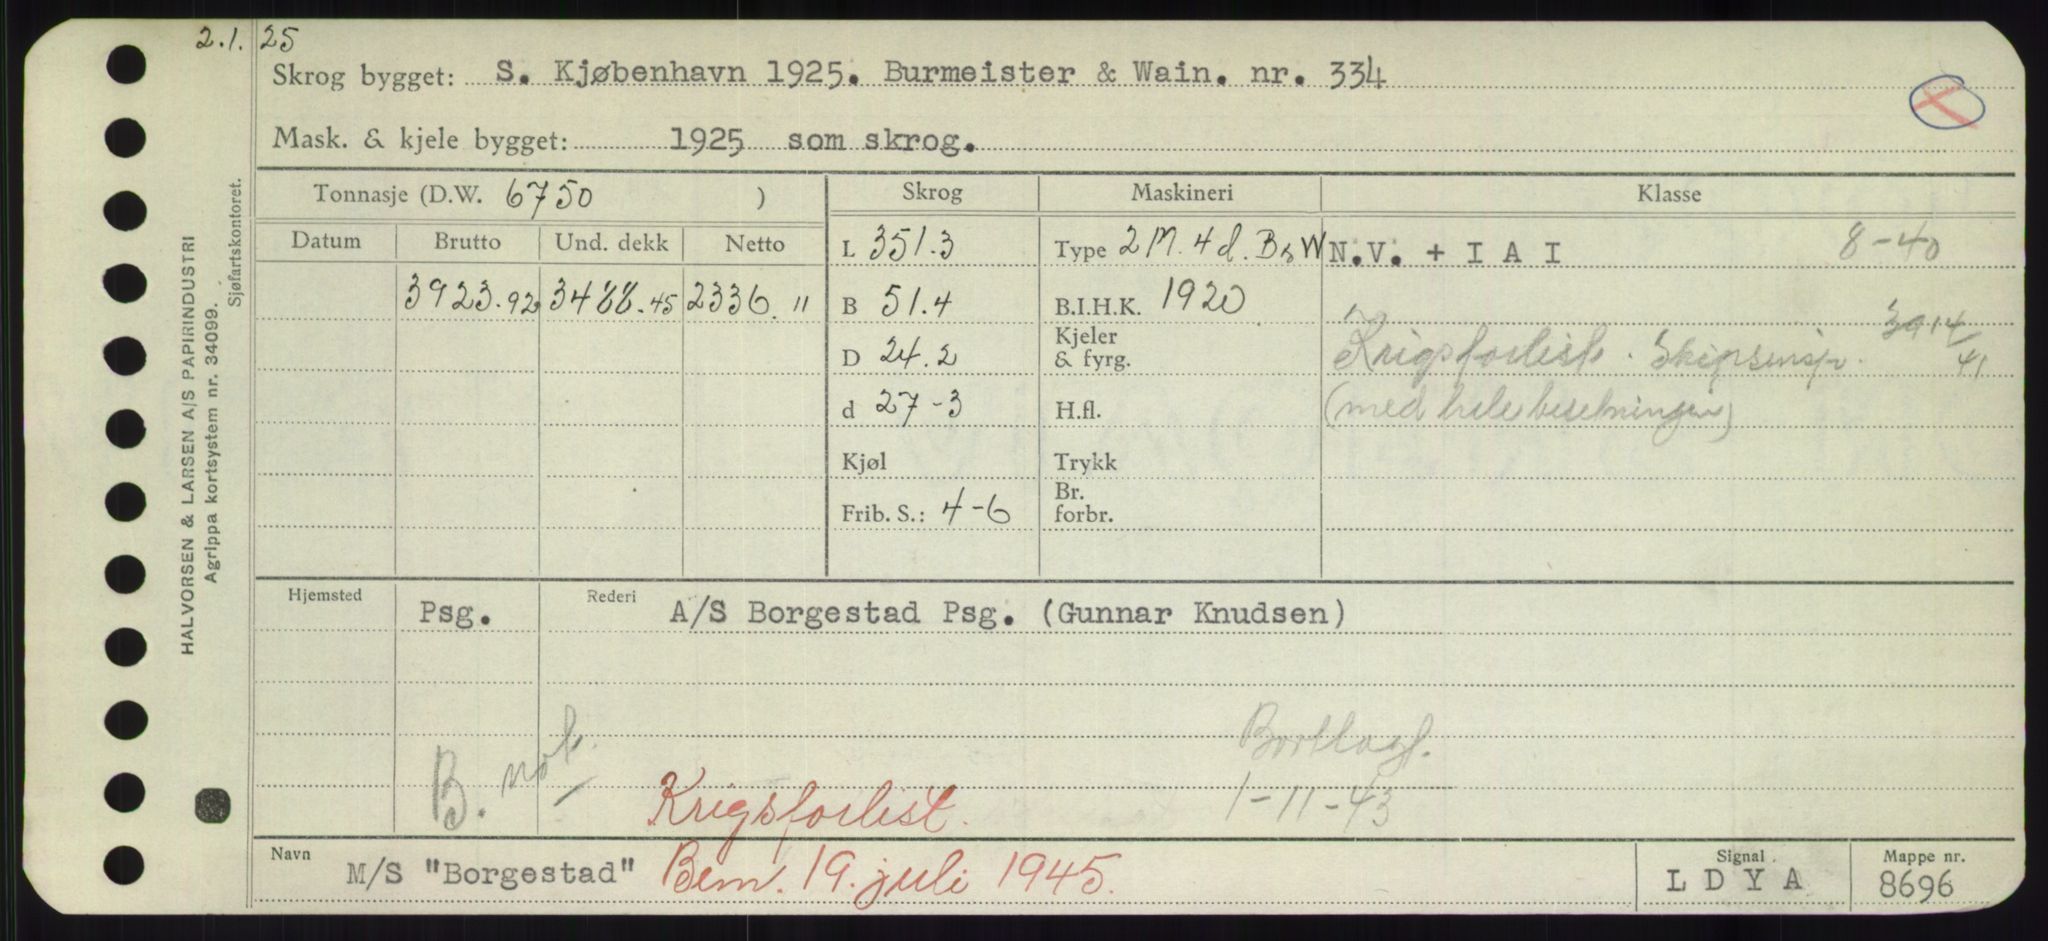 2.1.25
Skrog bygget: S. Kjøbenhavn 1925. Burmeister & Wain. nr. 334
Mask. & kjele bygget: 1925 som skrog.
HALVORSEN & LARSEN A/S PAPIRINDUSTRI
Agrippa kortsystem nr. 34099.
Sjøfartskontoret.
Tonnasje (D.W. 6750 ) Skrog Maskineri Klasse
Datum Brutto Und. dekk Netto
L 351.3 Type 2 M. 4 d. B & W N.V. + I A I 8-40
3923.92 3488.45 2336.11 B 51.4 B.I.H.K. 1920
D 24.2 Kjeler & fyrg. Krigsforlist. Skipsinsp. 3914/41
d 27-3 H.fl. (med hele besetningen)
Kjøl Trykk
Frib. S.: 4-6 Br. forbr.
Hjemsted Psg. Rederi A/S Borgestad Psg. (Gunnar Knudsen)
B. not. Borttagf.
Krigsforlist. 1-11-43
Navn M/S "Borgestad" Bem. 19. juli 1945. Signal L D Y A Mappe nr. 8696